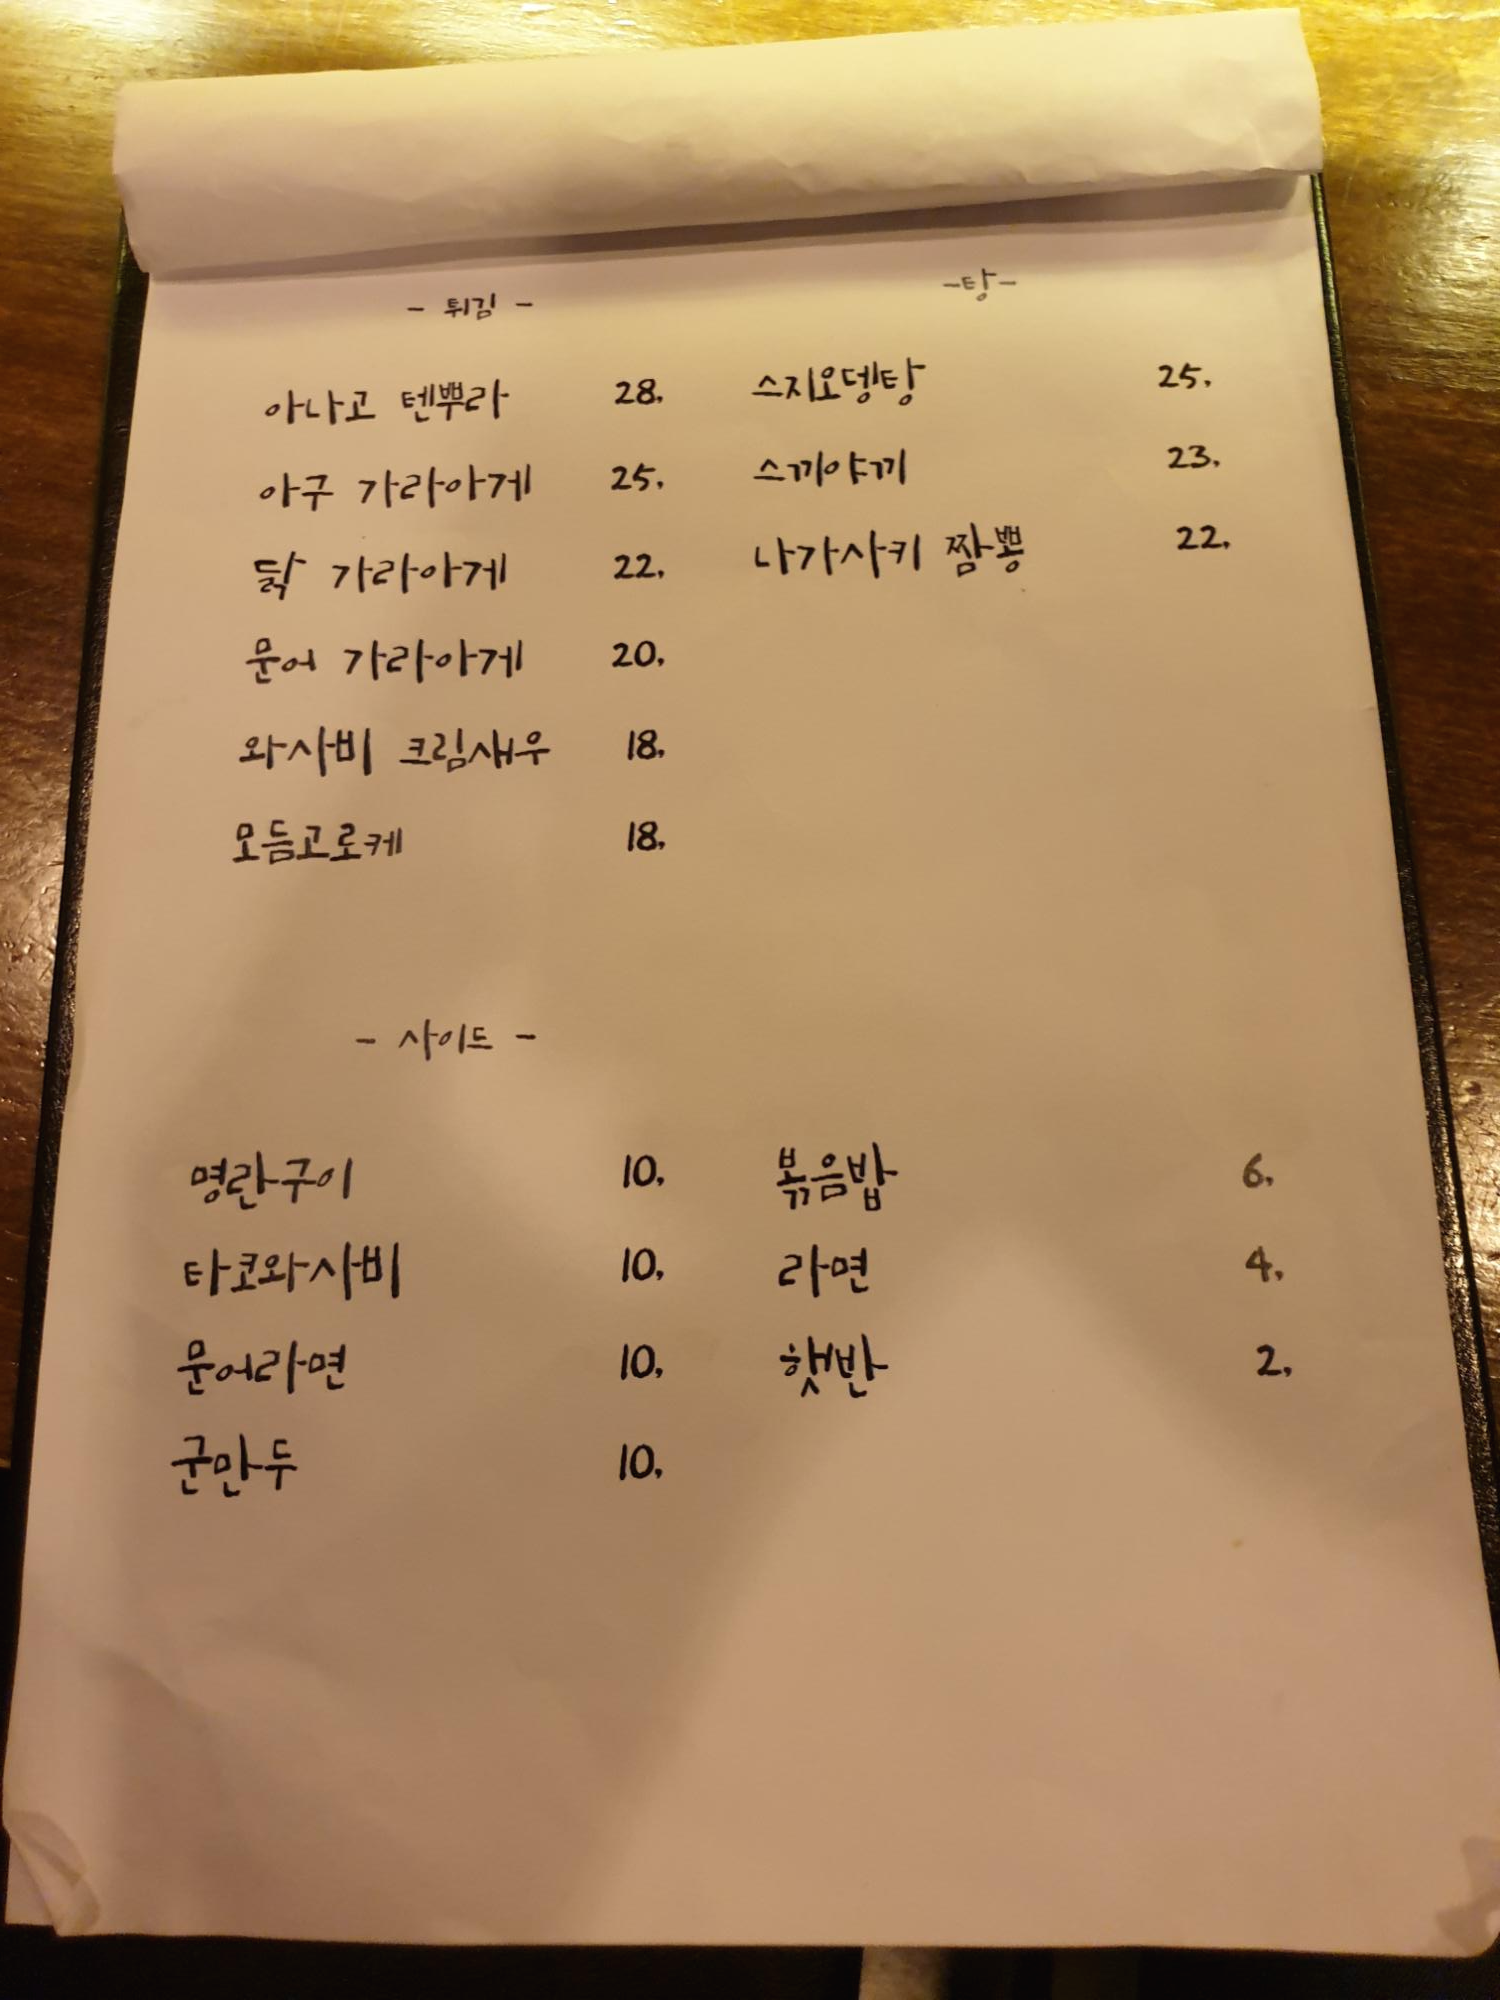 - 튀김 -
아나고 텐뿌라 28.
아구 가라아게 25.
닭 가라아게 22.
문어 가라아게 20.
와사비 크림새우 18.
모듬고로케 18.
-탕-
스지오뎅탕 25.
스끼야끼 23.
나가사키 짬뽕 22.
- 사이드 -
명란구이 10.
타코와사비 10.
문어라면 10.
군만두 10.
볶음밥 6.
라면 4.
햇반 2.